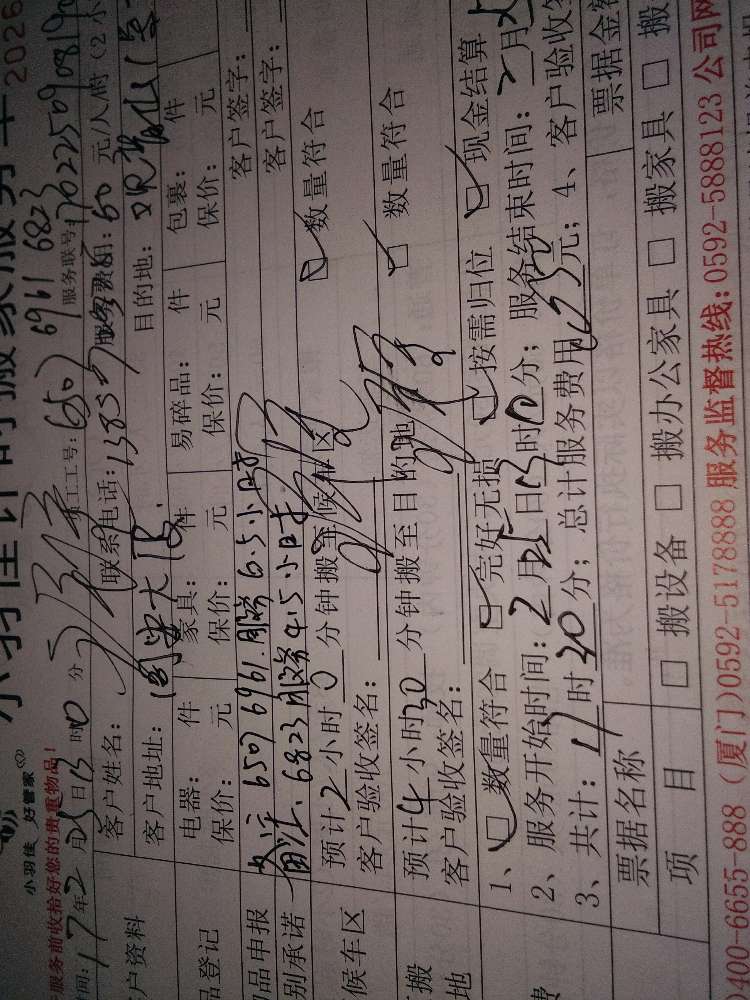 小羽佳计时搬家服务卡 2026
小羽佳 好管家
服务前收拾好您的贵重物品!
时间:17年2月25日13时0分 员工工号:6507 6961 6823 服务联号:170225090819
客户资料
客户姓名: 联系电话: 服务费用:60元/人/时(2小
客户地址: 目的地:
品登记
电器: 件 家具: 件 易碎品: 件 包裹: 件
保价: 元 保价: 元 保价: 元 保价: 元
物品申报 备注:6507 6961.服务6.5小时 客户签字:
别承诺 备注.6823服务4.5小时. 客户签字:
候车区
预计2小时0分钟搬至候车区 数量符合
客户验收签名:
搬
地
预计4小时30分钟搬至目的地 数量符合
客户验收签名:
费
1、 数量符合 完好无损 按需归位 现金结算
2、服务开始时间:2月25日13时0分; 服务结束时间:2月
3、共计:17时30分; 总计服务费用 元; 4、客户验收签
票据名称 票据金额
项 目 □ 搬设备 □ 搬办公家具 □ 搬家具 □ 搬
400-6655-888 (厦门)0592-5178888 服务监督热线:0592-5888123 公司网